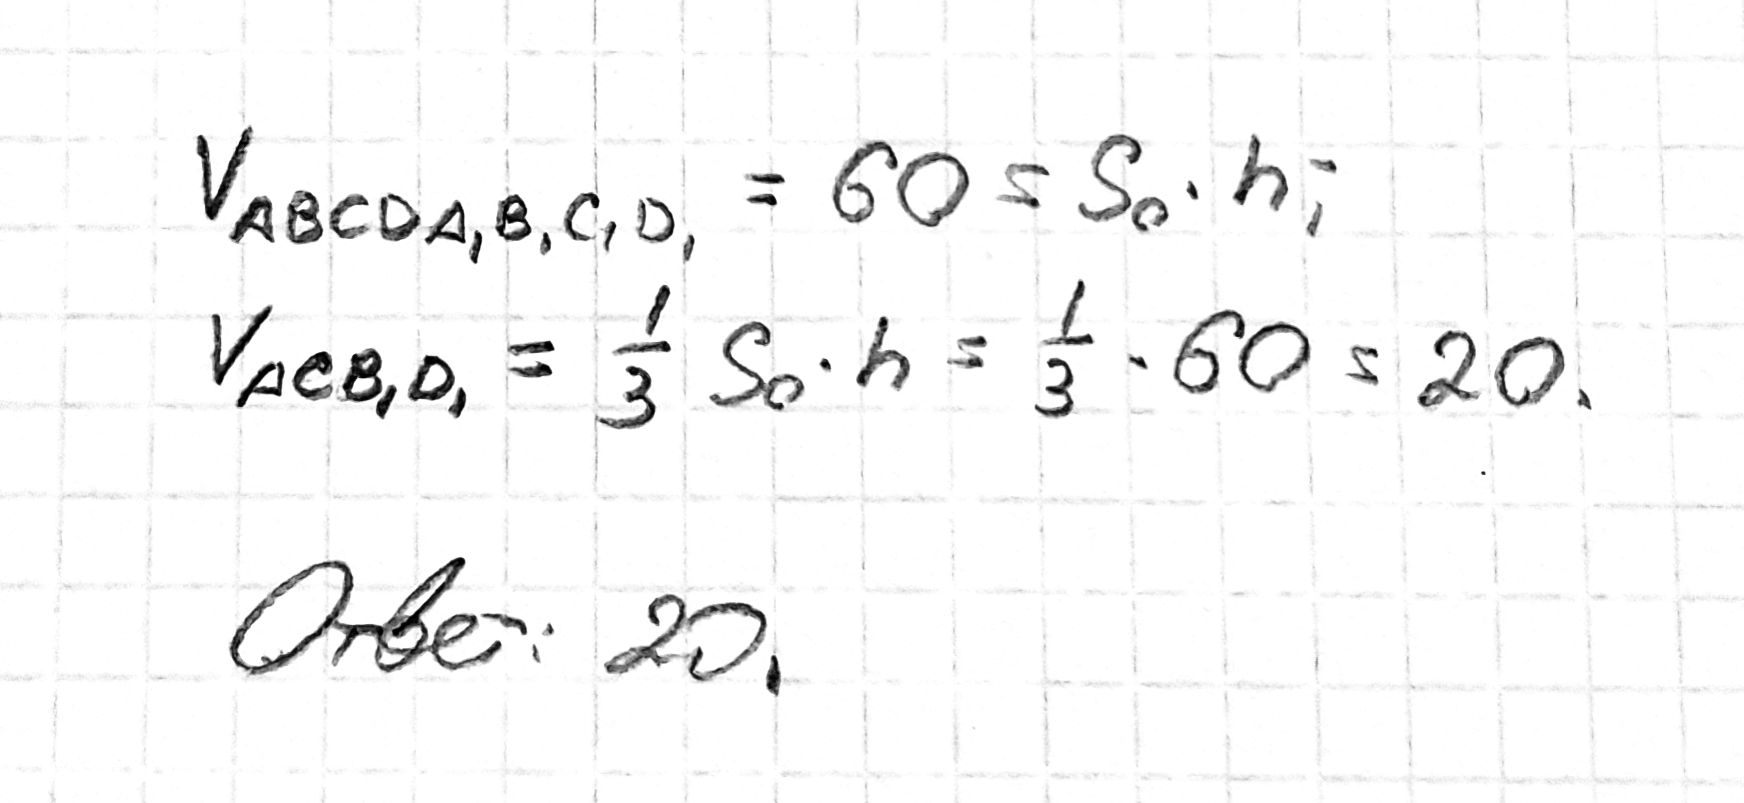 V_{ABCDA₁B₁C₁D₁} = 60 = S₀ · h;
V_{ACB₁D₁} = 1/3 S₀ · h = 1/3 · 60 = 20.
Ответ: 20.